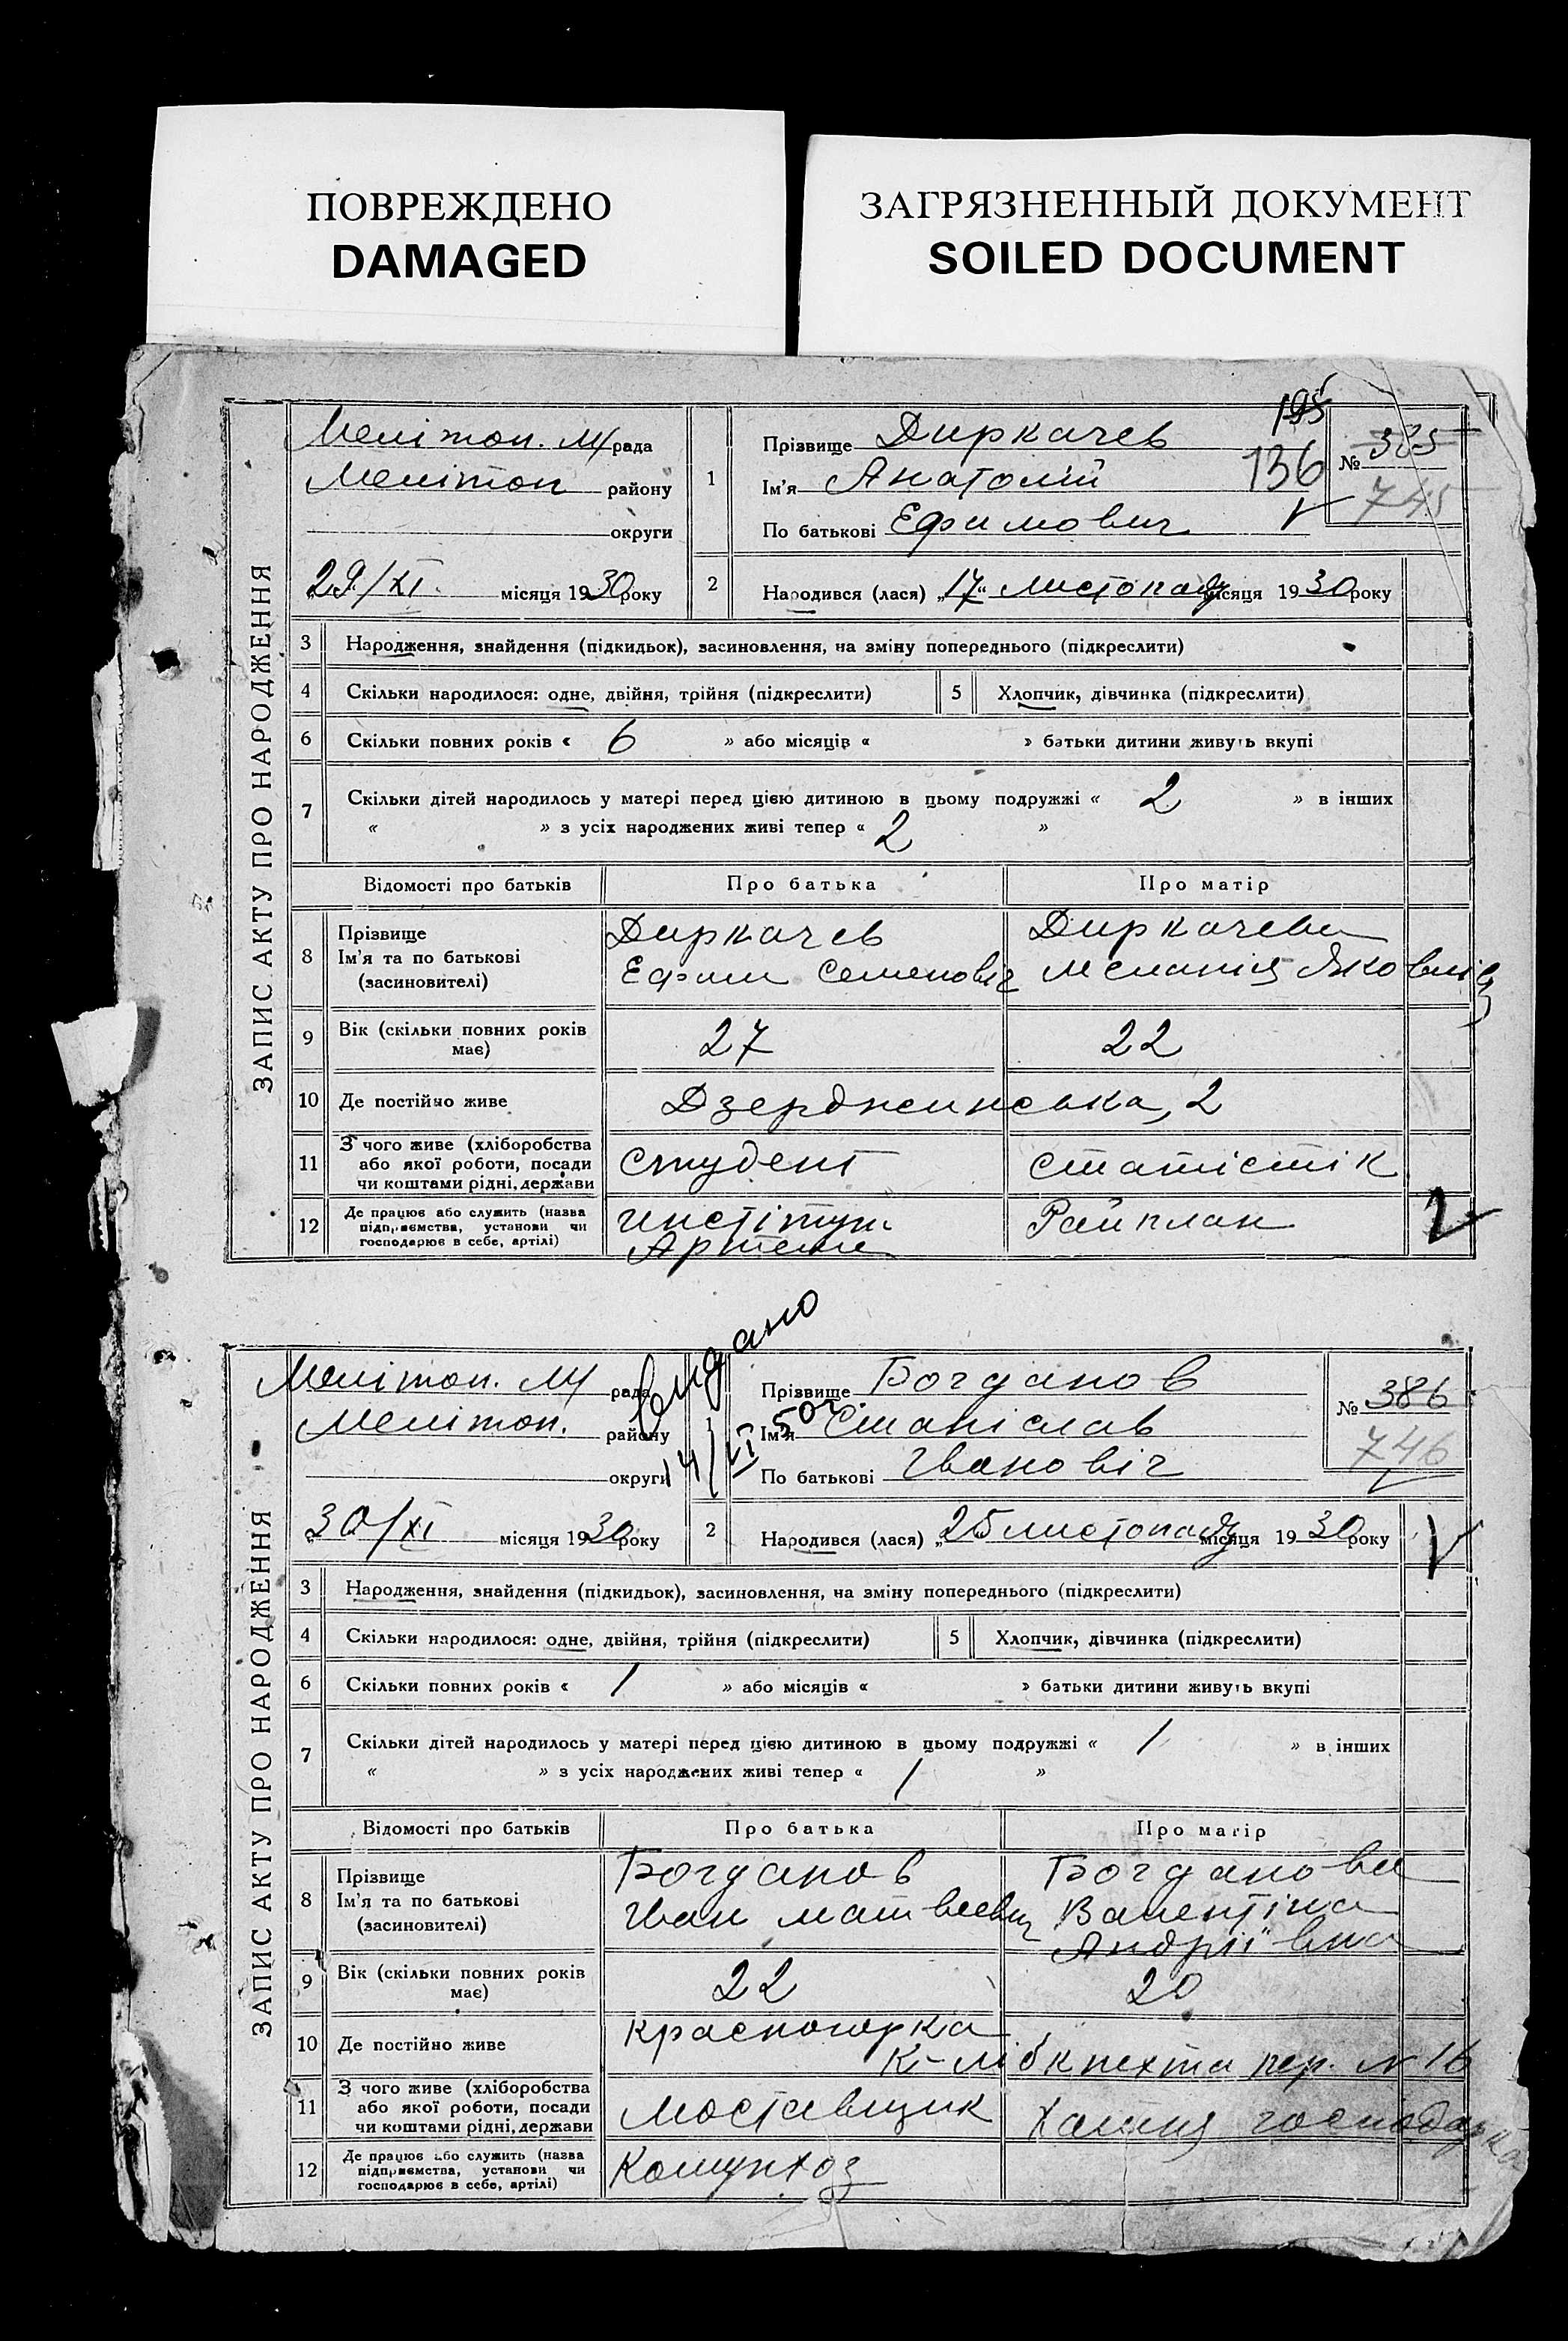 ПОВРЕЖДЕНО
DAMAGED
ЗАГРЯЗНЕННЫЙ ДОКУМЕНТ
SOILED DOCUMENT
ЗАПИС АКТУ ПРО НАРОДЖЕННЯ
Мелітоп. М/рада
Мелітоп району
округи
„29/XI. місяця 1930 року
195
136
№ 385
745
1 Прізвище Диркачев
Ім'я Анатолій
По батькові Ефимович
2 Народився (лася) „17“ листопаду місяця 1930 року
3 Народження, знайдення (підкидьок), засиновлення, на зміну попереднього (підкреслити)
4 Скільки народилося: одне, двійня, трійня (підкреслити) 5 Хлопчик, дівчинка (підкреслити)
6 Скільки повних років « 6 » або місяців « » батьки дитини живуть вкупі
7 Скільки дітей народилось у матері перед цією дитиною в цьому подружжі « 2 » в інших
« » з усіх народжених живі тепер « 2 »
Відомості про батьків Про батька Про матір
8 Прізвище Диркачев Диркачева
Ім'я та по батькові Ефим Семеновіч Меланія Яковлівна
(засиновителі)
9 Вік (скільки повних років має) 27 22
10 Де постійно живе Дзерджинська, 2
11 З чого живе (хліборобства
або якої роботи, посади студент статістік
чи коштами рідні, держави
12 Де працює або служить (назва Інстітут Райплан
підприємства, установи чи
господарює в себе, артілі) Артема
2
видано
14/VI 50г.
ЗАПИС АКТУ ПРО НАРОДЖЕННЯ
Мелітоп. М/ рада
Мелітоп. району
округи
„30/XI місяця 1930 року
№ 386
746
1 Прізвище Богданов
Ім'я Станіслав
По батькові Івановіч
2 Народився (лася) „25 листопаду місяця 1930 року
3 Народження, знайдення (підкидьок), засиновлення, на зміну попереднього (підкреслити)
4 Скільки народилося: одне, двійня, трійня (підкреслити) 5 Хлопчик, дівчинка (підкреслити)
6 Скільки повних років « 1 » або місяців « » батьки дитини живуть вкупі
7 Скільки дітей народилось у матері перед цією дитиною в цьому подружжі « 1 » в інших
« » з усіх народжених живі тепер « 1 »
Відомості про батьків Про батька Про матір
8 Прізвище Богданов Богданова
Ім'я та по батькові Іван Матвеевич Валентіна
(засиновителі) Андріївна
9 Вік (скільки повних років має) 22 20
10 Де постійно живе Красногорка
К-Лібкнехта пер. № 16
11 З чого живе (хліборобства
або якої роботи, посади Моставщик Хатня господарка
чи коштами рідні, держави
12 Де працює або служить (назва Комунхоз
підприємства, установи чи
господарює в себе, артілі)